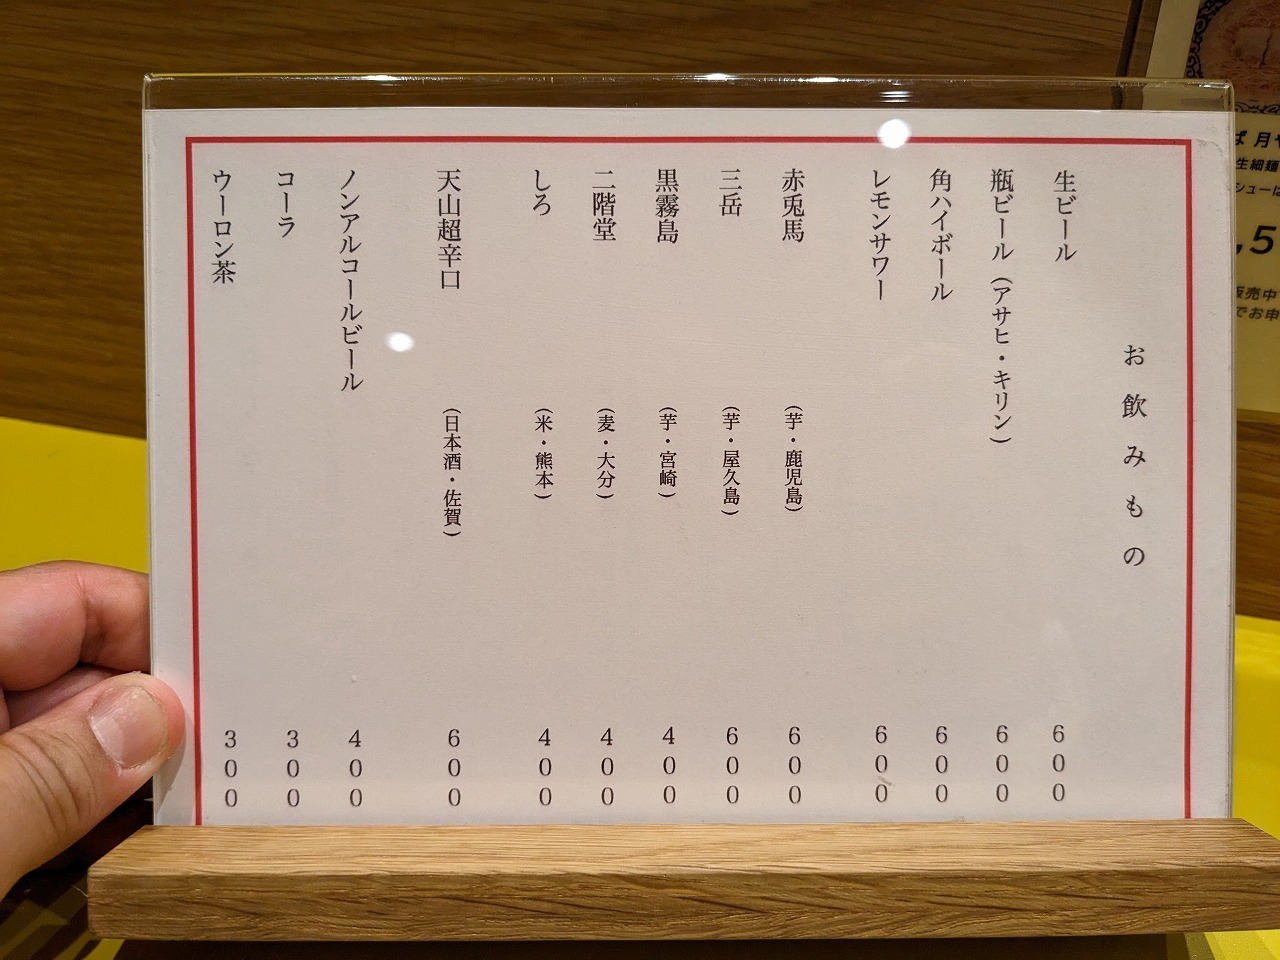 お飲みもの
生ビール 600
瓶ビール（アサヒ・キリン） 600
角ハイボール 600
レモンサワー 600
赤兎馬 （芋・鹿児島） 600
三岳 （芋・屋久島） 600
黒霧島 （芋・宮崎） 400
二階堂 （麦・大分） 400
しろ （米・熊本） 400
天山超辛口 （日本酒・佐賀） 600
ノンアルコールビール 400
コーラ 300
ウーロン茶 300
ば 月や
生細麺
シューは
,5
販売中
でお申